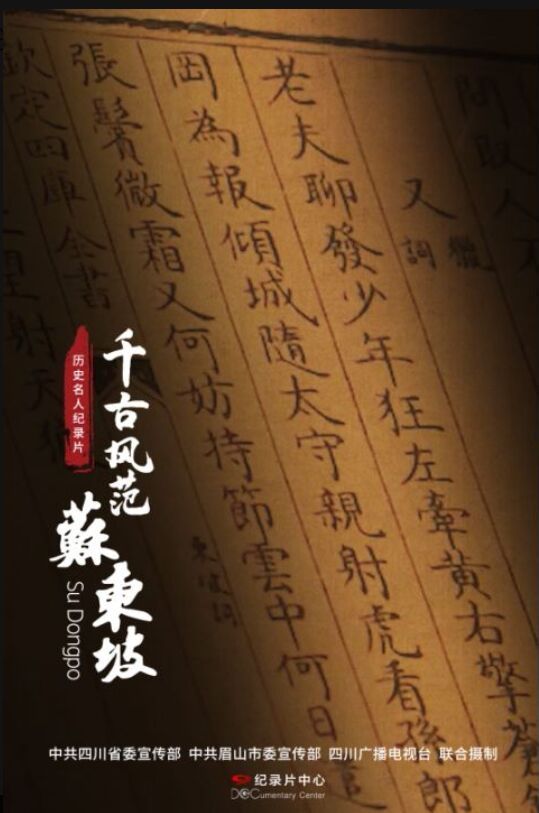 問取人不
又
獵
詞
老夫聊發少年狂左牽黃右擎蒼
岡為報傾城隨太守親射虎看孫郎
張鬢微霜又何妨持節雲中何日遣
欽定四庫全書
東坡詞
望射天狼
历史名人纪录片
千古风范
蘇東坡
Su Dongpo
中共四川省委宣传部 中共眉山市委宣传部 四川广播电视台 联合摄制
纪录片中心
DOCumentary Center